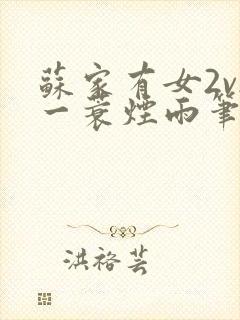 蘇家有女2v
一蓑煙雨筆
洪裕芸